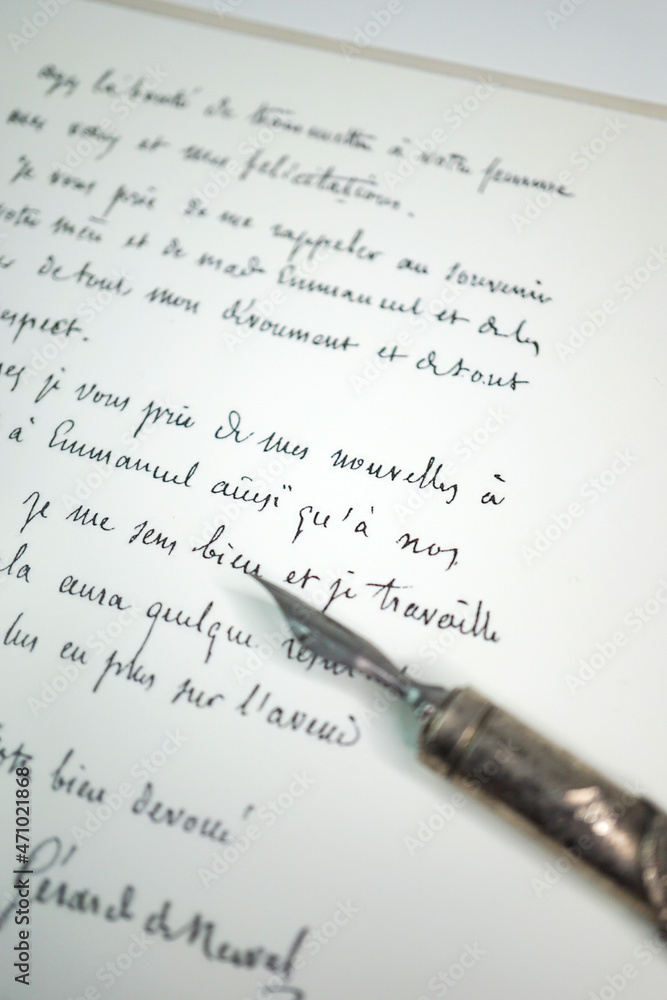 la bonté de transmettre à votre femme
mes vœux et mes félicitations.
Je vous prie de me rappeler au souvenir
votre mère et de mad. Emmanuel et de les
de tout mon dévouement et de tout
respect.
je vous prie de mes nouvelles à
à Emmanuel ainsi qu'à nos
Je me sens bien et je travaille
la aura quelque
en plus sur l'avenir
Votre bien devoué
Gérard de Nerval
Adobe Stock | #471021868